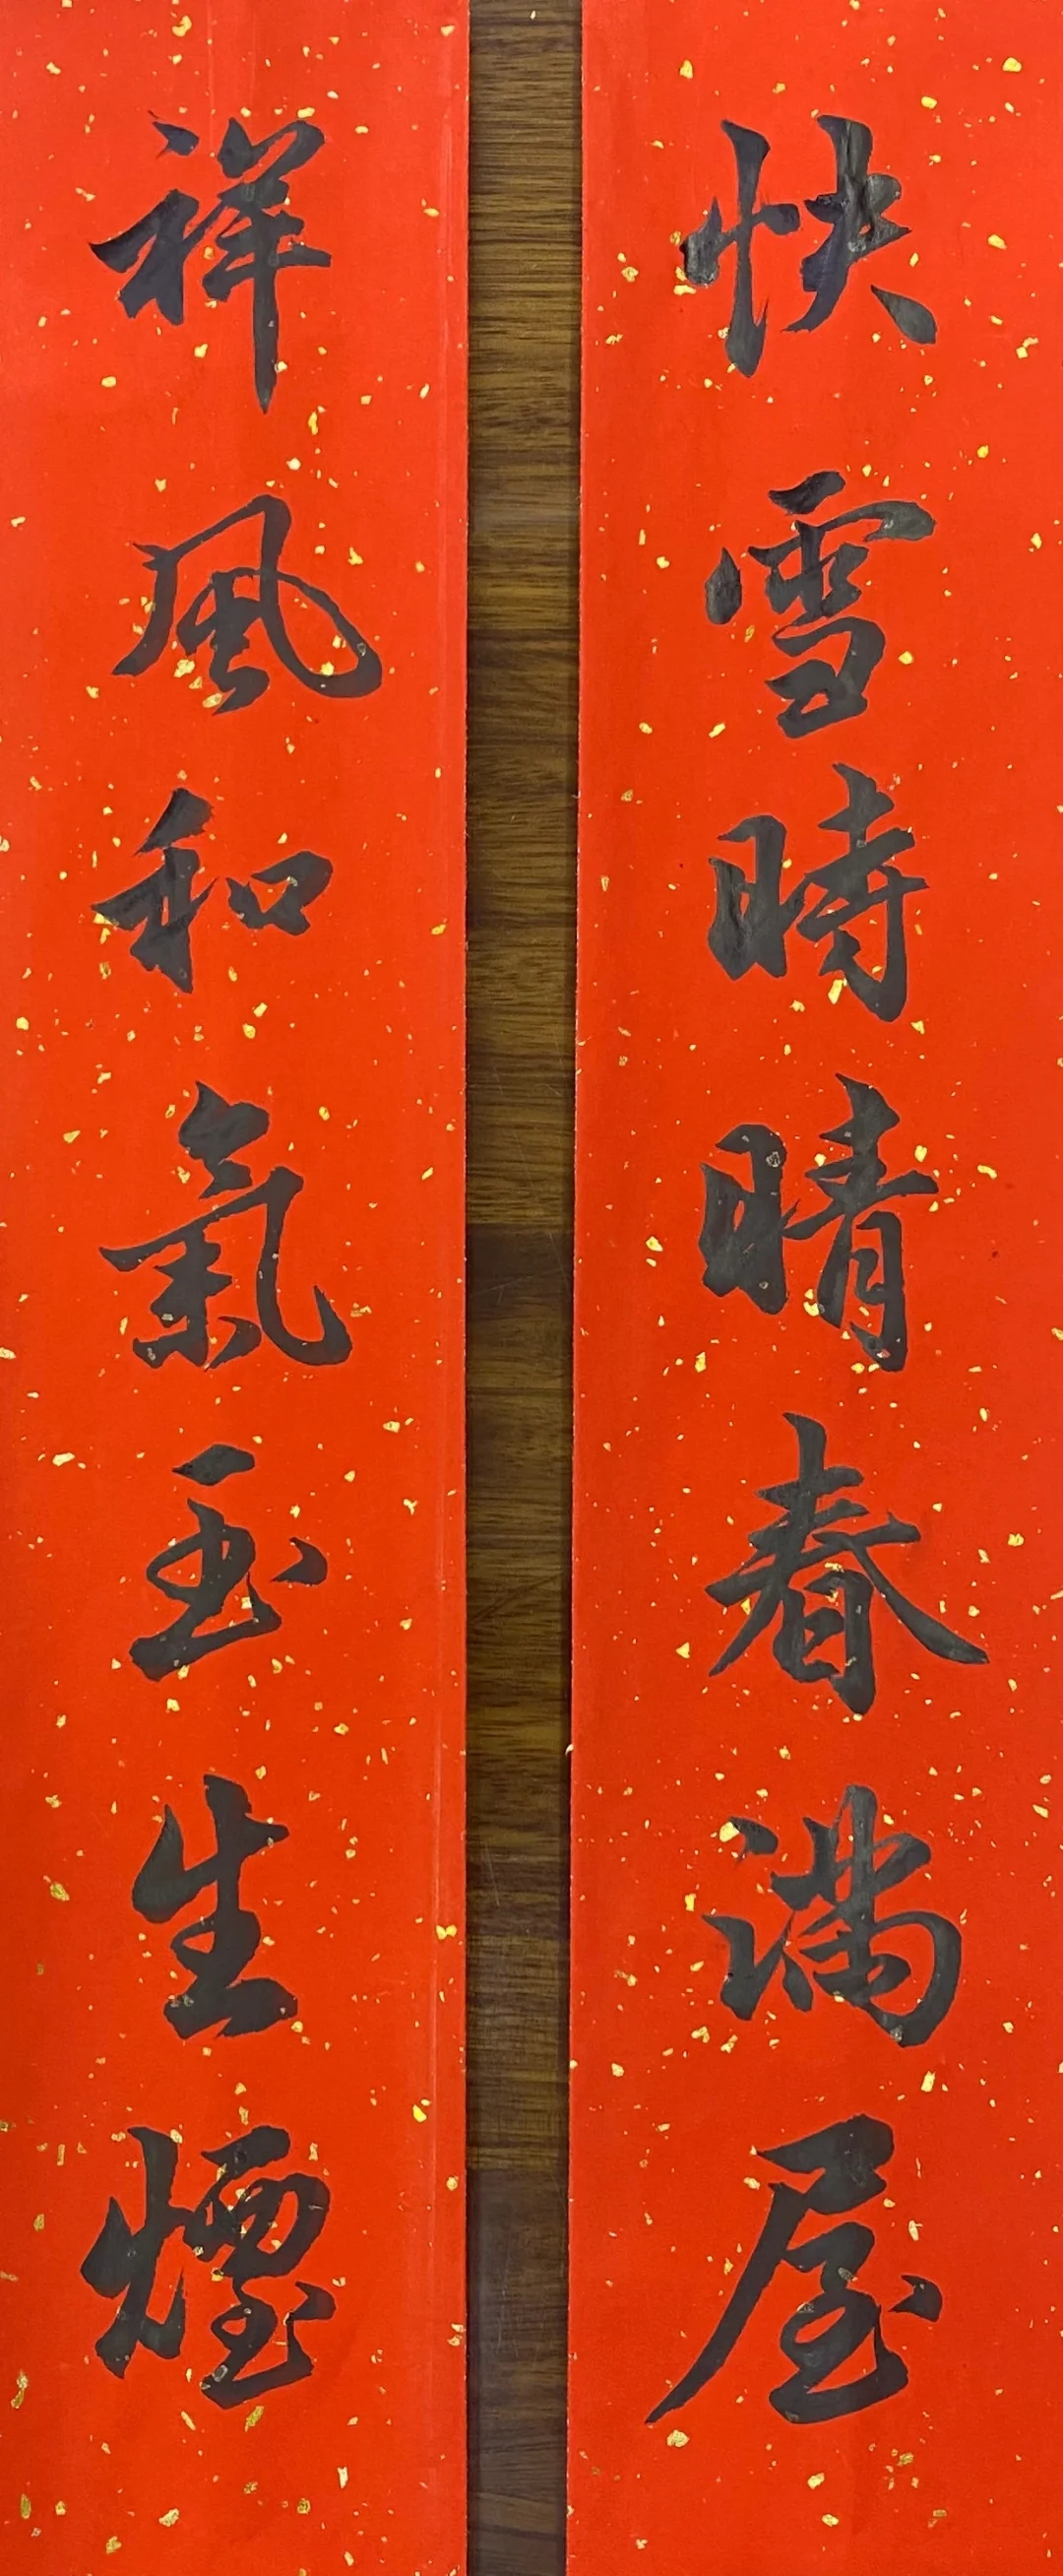 快雪時晴春满屋
祥風和氣玉生煙